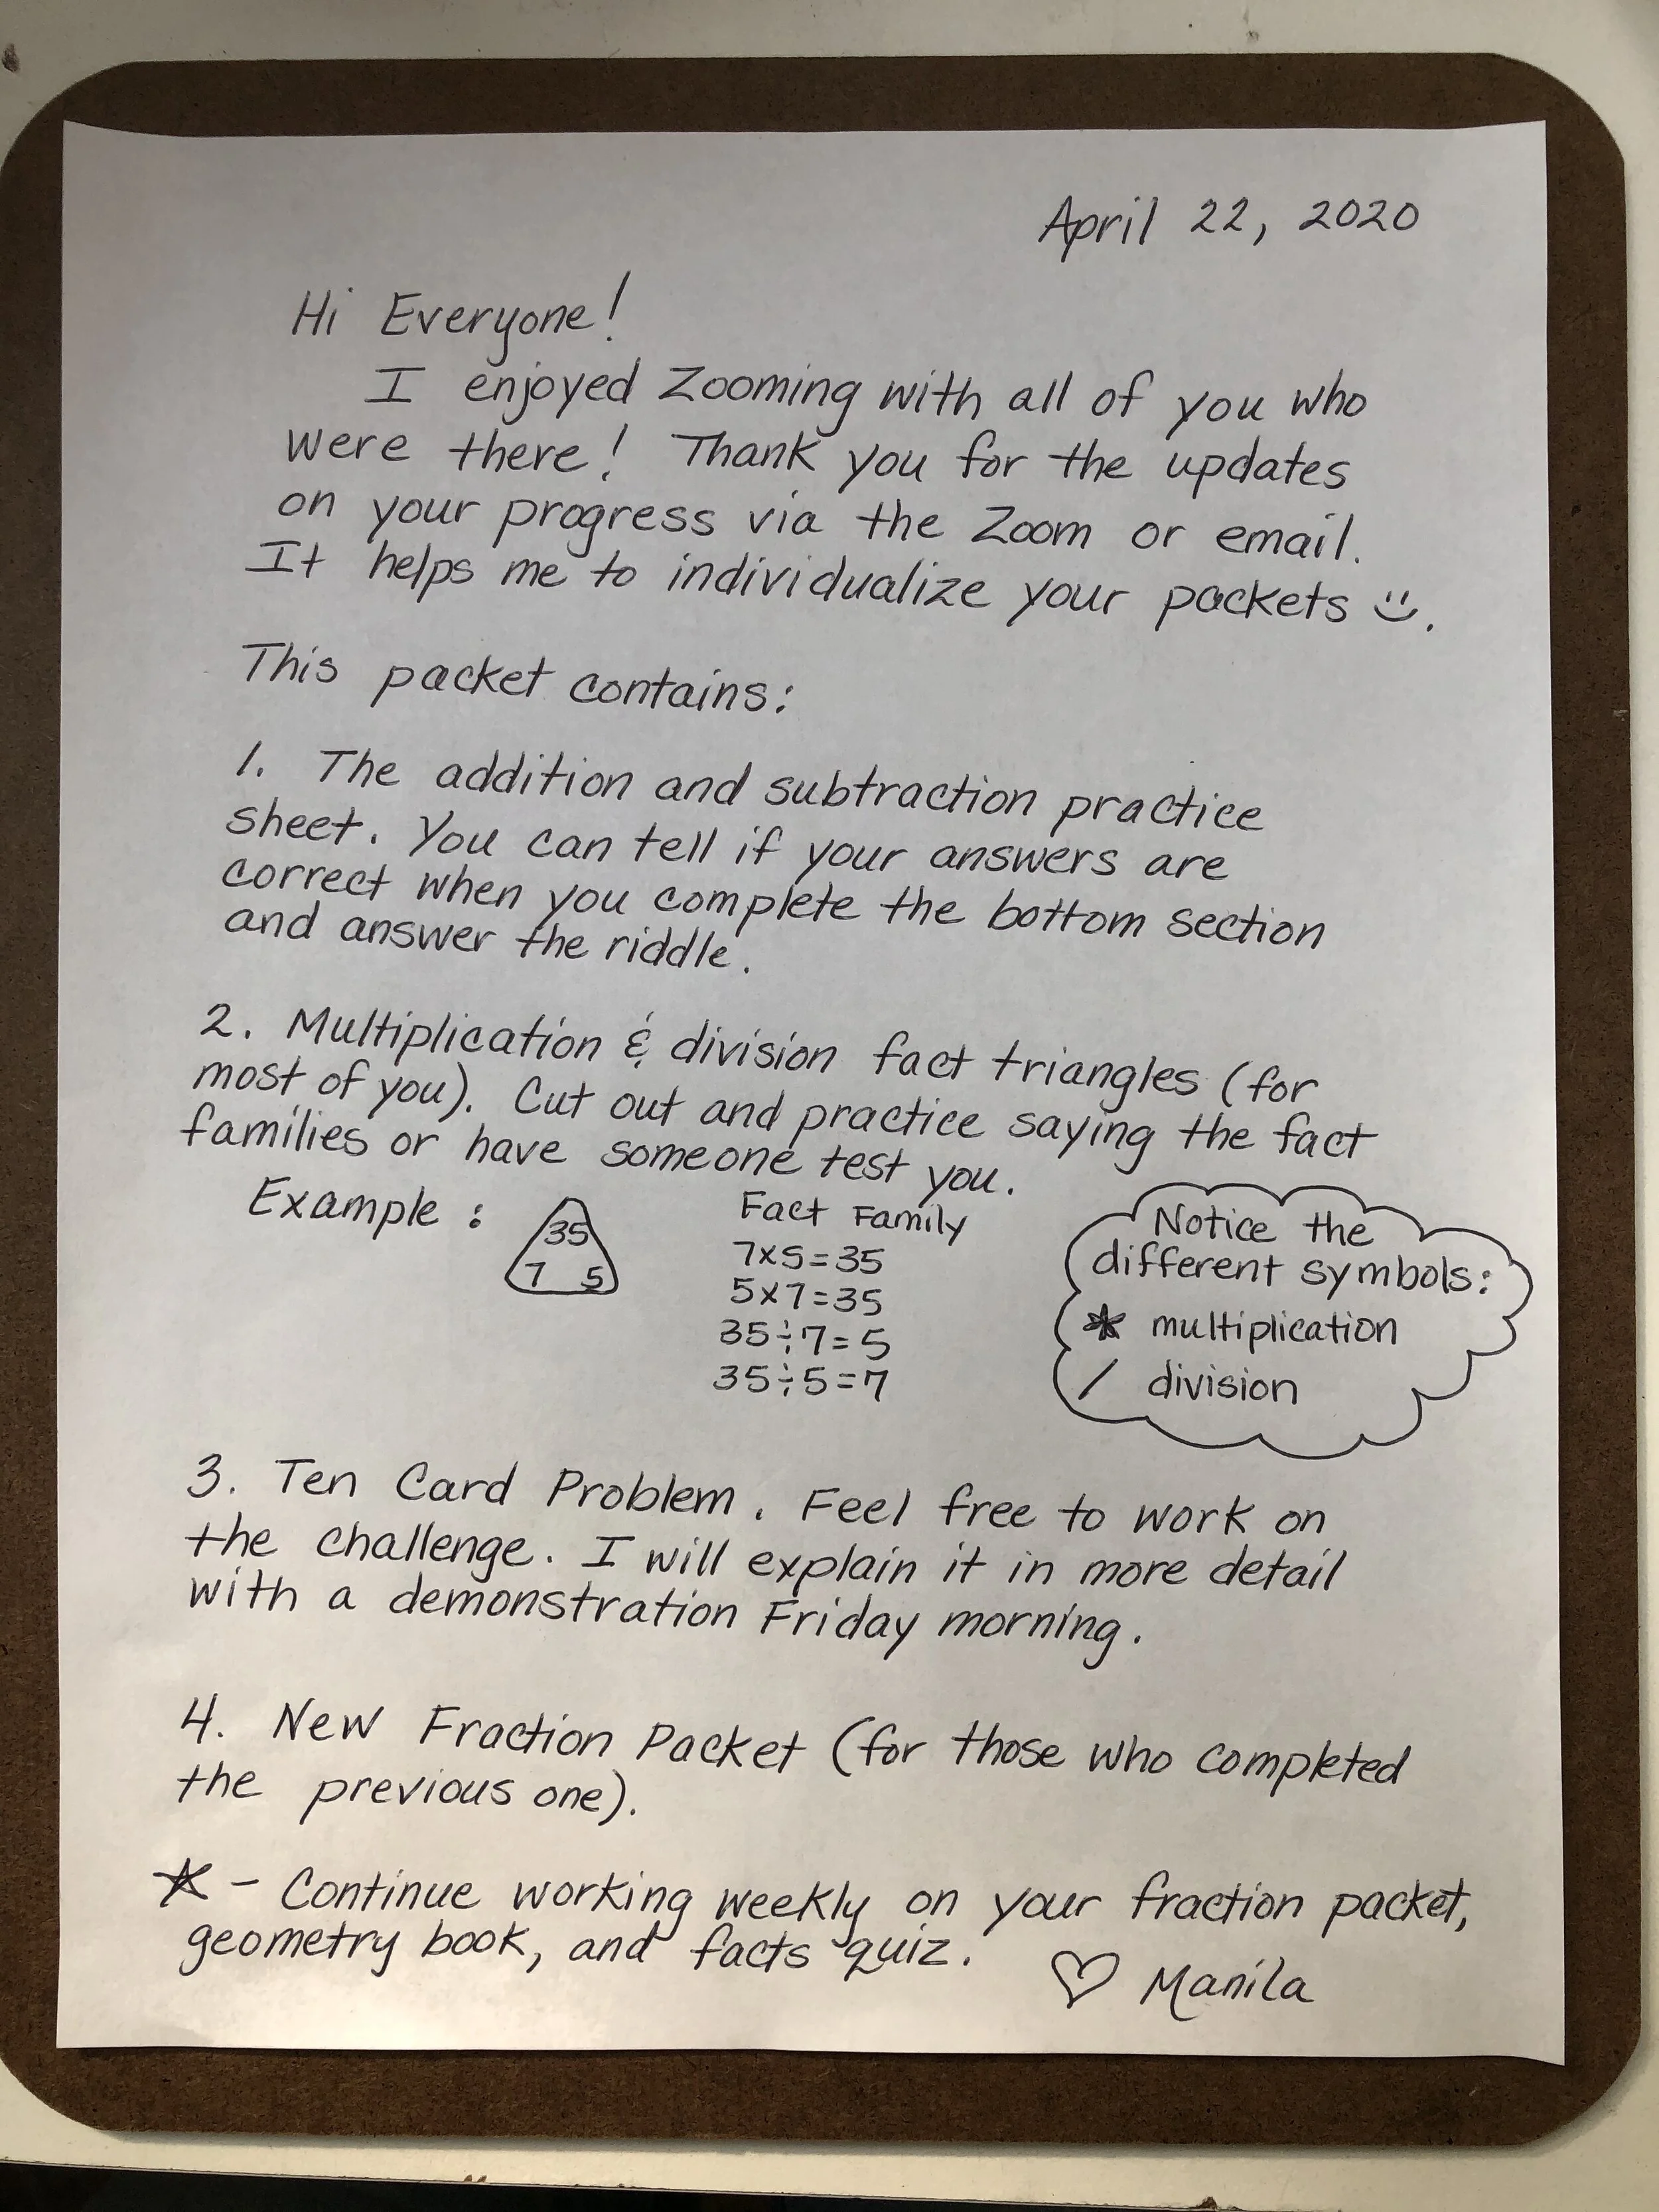 April 22, 2020
Hi Everyone!
I enjoyed Zooming with all of you who
were there! Thank you for the updates
on your progress via the Zoom or email.
It helps me to individualize your packets :).
This packet contains:
1. The addition and subtraction practice
sheet. You can tell if your answers are
correct when you complete the bottom section
and answer the riddle.
2. Multiplication & division fact triangles (for
most of you). Cut out and practice saying the fact
families or have someone test you.
Example :
35
7 5
Fact Family
7x5=35
5x7=35
35÷7=5
35÷5=7
Notice the
different symbols:
* multiplication
/ division
3. Ten Card Problem. Feel free to work on
the challenge. I will explain it in more detail
with a demonstration Friday morning.
4. New Fraction Packet (for those who completed
the previous one).
☆ - Continue working weekly on your fraction packet,
geometry book, and facts quiz.
♡ Manila